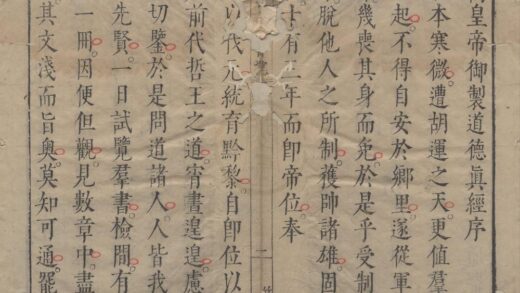 皇帝御製道德眞經序
本寒微遭胡運之天更值羣
起不得自安於鄉里遂從軍
幾喪其身而免於是乎受制
脫他人之所制獲帥諸雄固
十有三年而卽帝位奉
二
以代元統育黔黎自卽位以
前代哲王之道宵晝遑遑慮
切鑒於是問道諸人人皆我
先賢一日試覽羣書檢間有
一冊因便但觀見數章中盡
其文淺而旨奧莫知可通罷